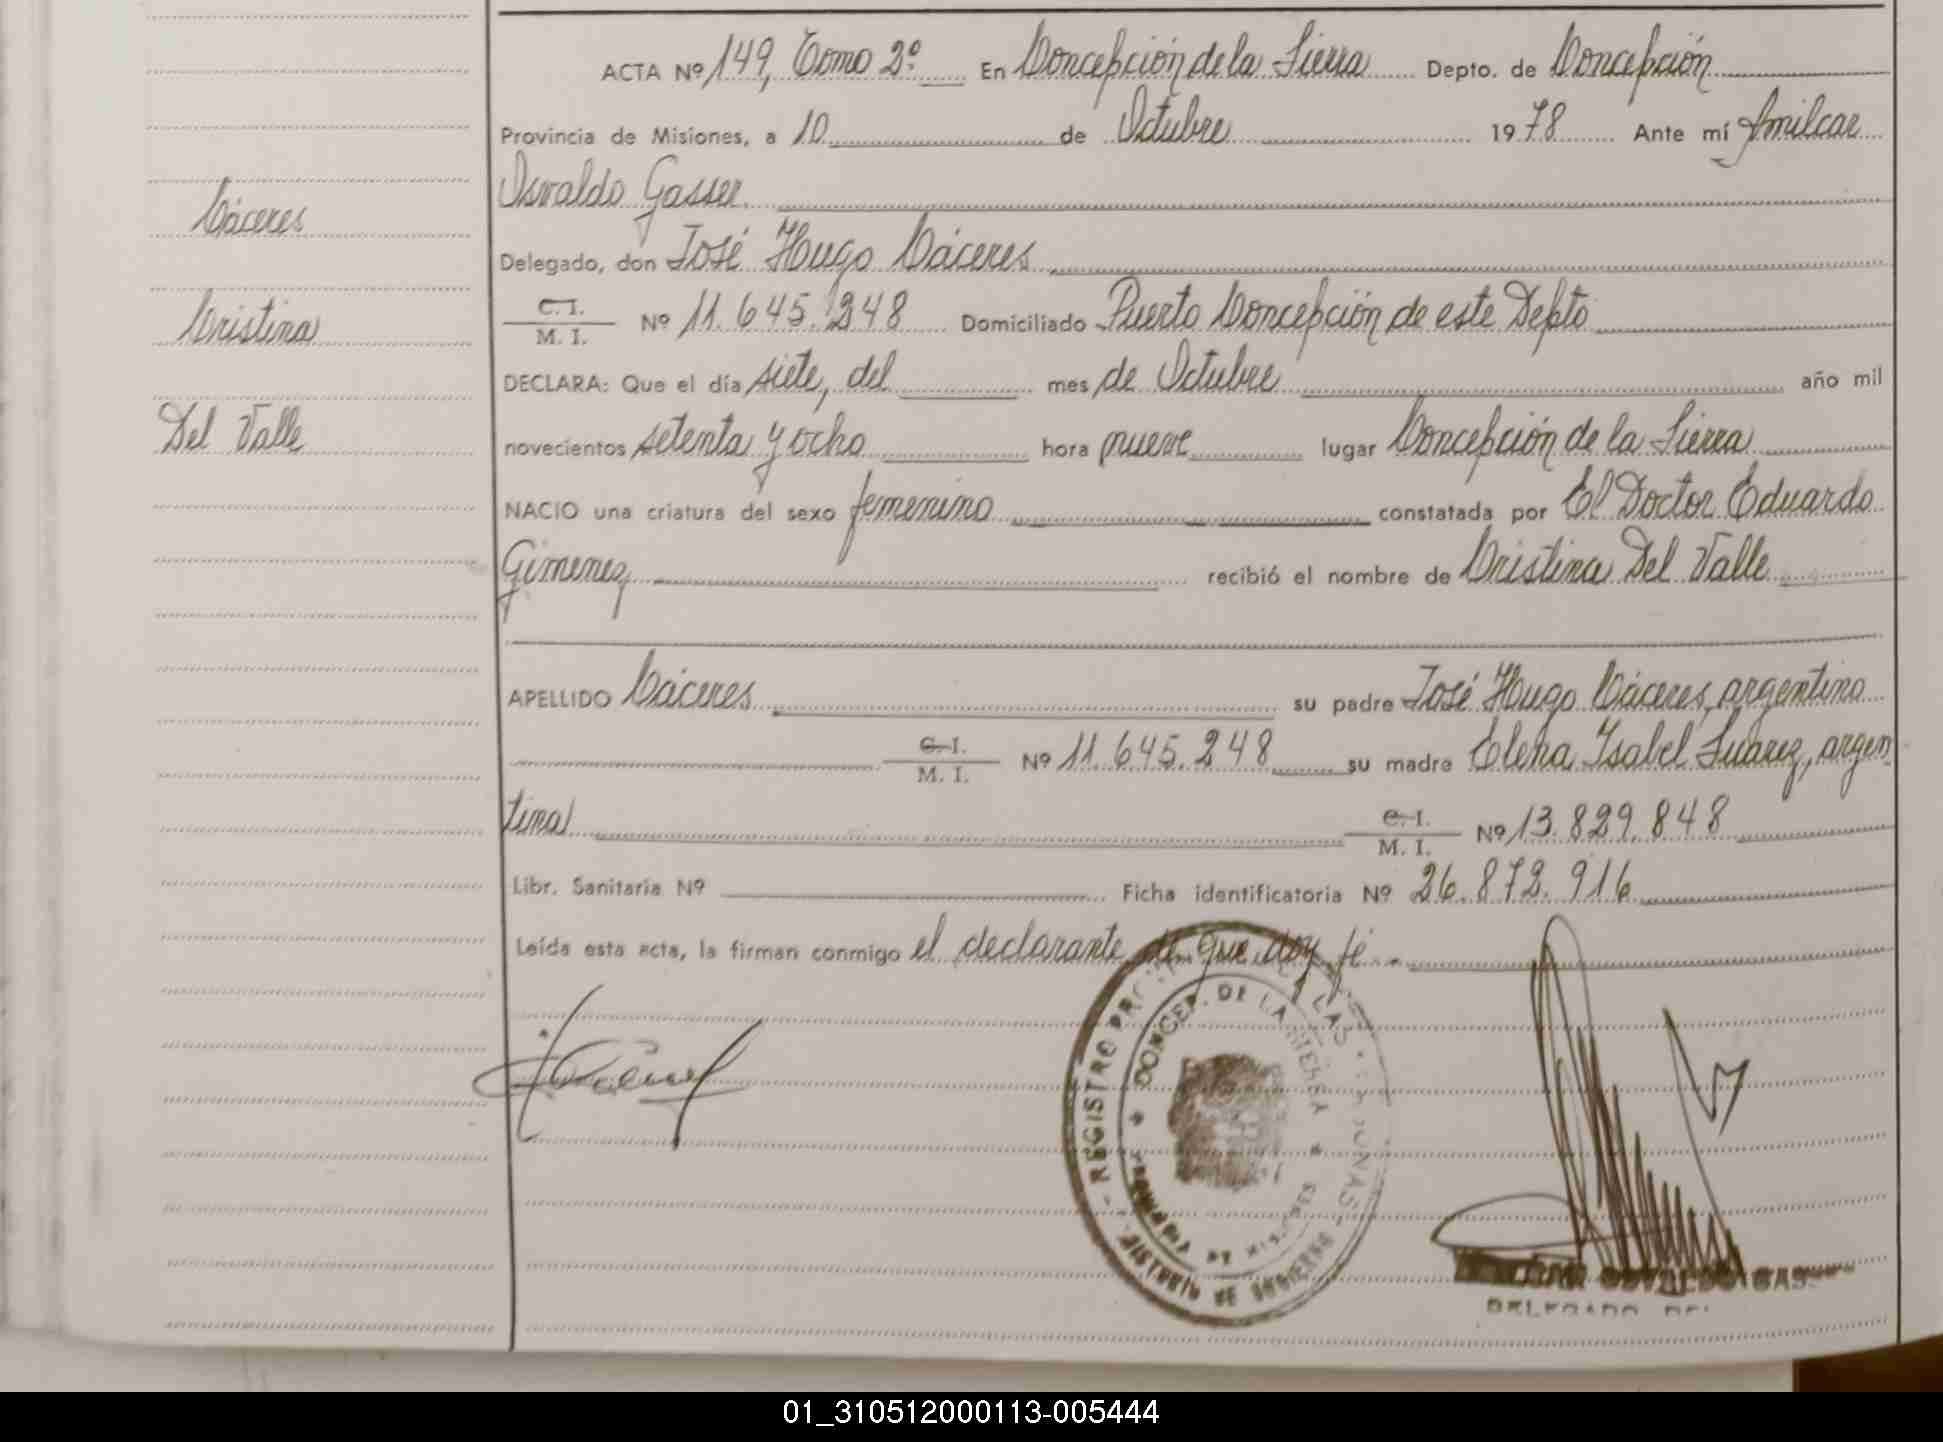 ACTA Nº 149, Tomo 2º En Concepción de la Sierra Depto. de Concepción
Provincia de Misiones, a 10 de Octubre 1978 Ante mí Amilcar
Osvaldo Gasser.
Cáceres
Delegado, don José Hugo Cáceres
C. I.
M. I.
Nº 11.645.248 Domiciliado Puerto Concepción de este Depto
Cristina
DECLARA: Que el día siete, del mes de Octubre año mil
Del Valle
novecientos setenta y ocho hora nueve lugar Concepción de la Sierra
NACIO una criatura del sexo femenino constatada por El Doctor Eduardo
Gimenez recibió el nombre de Cristina Del Valle
APELLIDO Cáceres su padre José Hugo Cáceres, argentino
C. I.
M. I.
Nº 11.645.248 su madre Elena Isabel Suarez, argen
tina
C. I.
M. I.
Nº 13.829.848
Libr. Sanitaria Nº Ficha identificatoria Nº 26.872.916
Leída esta acta, la firman conmigo el declarante de que doy fé.
REGISTRO DE LAS
CONCEP. DE LA SIERRA
DE MISIONES
DE GOBIERNO
OSVALDO GAS
DELEGADO DEL
01_310512000113-005444